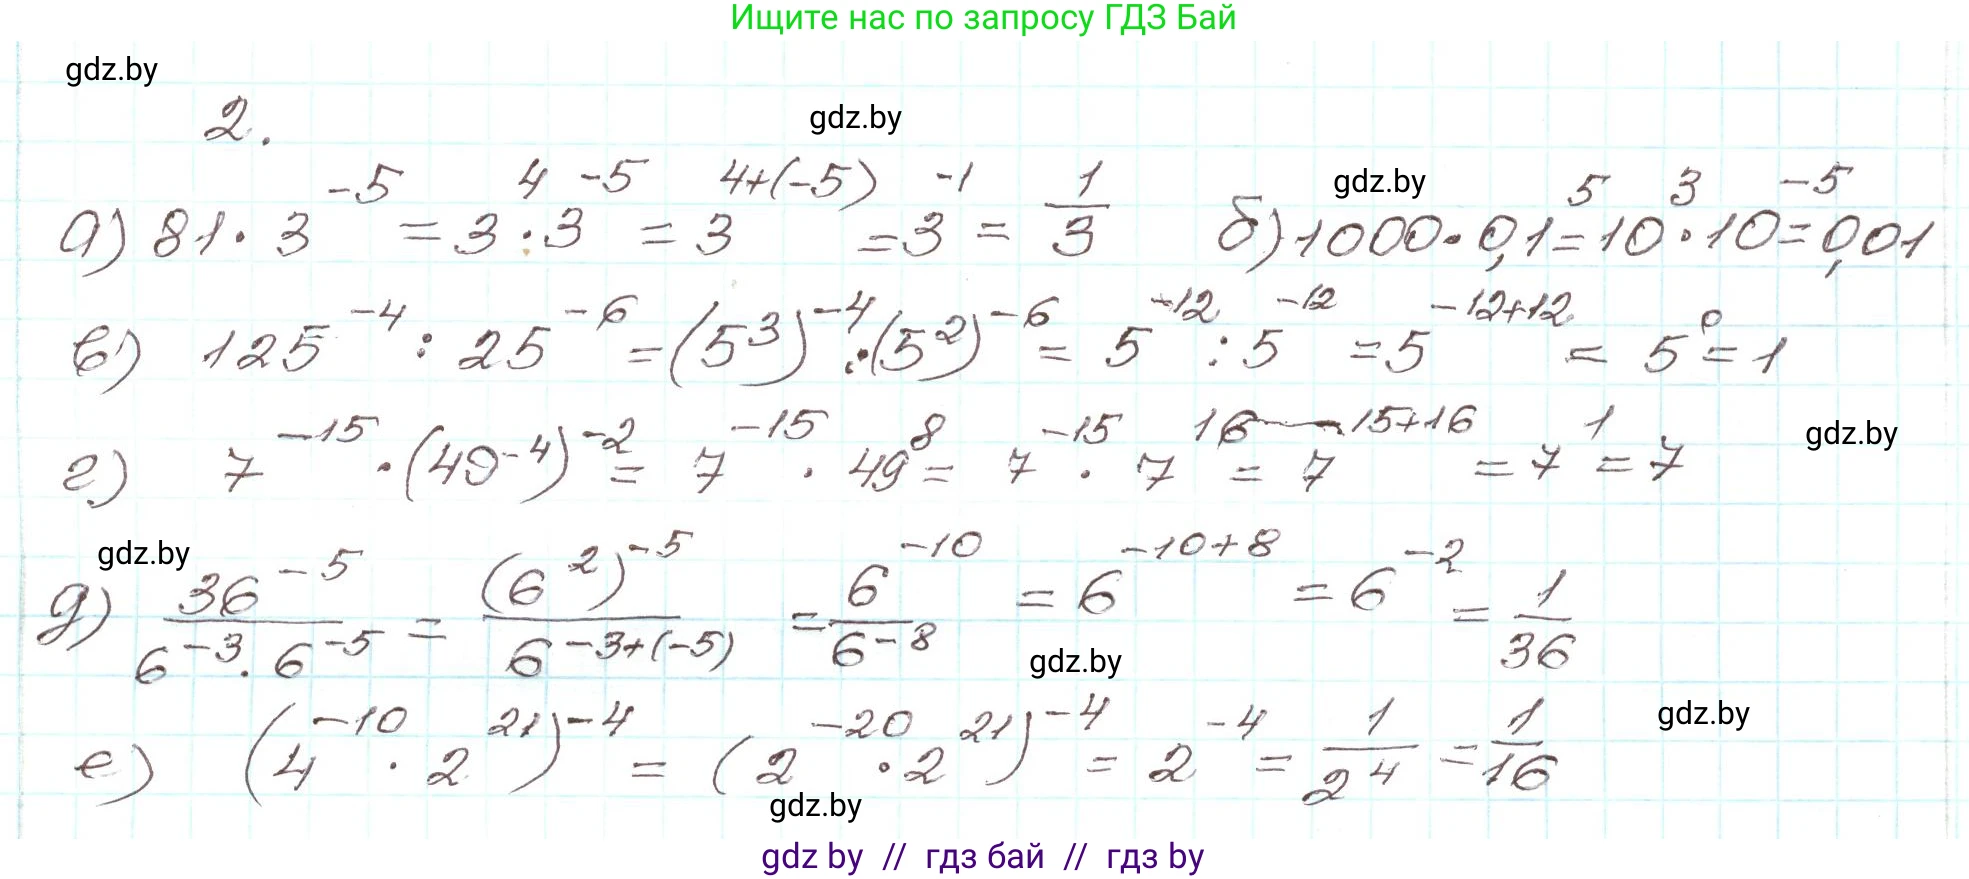 Ищите нас по запросу ГДЗ Бай
gdz.by
2.
gdz.by
gdz.by
а) 81 · 3⁻⁵ = 3⁴ · 3⁻⁵ = 3⁴⁺⁽⁻⁵⁾ = 3⁻¹ = 1/3 б) 1000 · 0,1⁵ = 10³ · 10⁻⁵ = 0,01
в) 125⁻⁴ : 25⁻⁶ = (5³)⁻⁴ : (5²)⁻⁶ = 5⁻¹² : 5⁻¹² = 5⁻¹²⁺¹² = 5⁰ = 1
gdz.by
г) 7⁻¹⁵ · (49⁻⁴)⁻² = 7⁻¹⁵ · 49⁸ = 7⁻¹⁵ · 7¹⁶ = 7⁻¹⁵⁺¹⁶ = 7¹ = 7
gdz.by
д) 36⁻⁵/(6⁻³ · 6⁻⁵) = (6²)⁻⁵/6⁻³⁺⁽⁻⁵⁾ = 6⁻¹⁰/6⁻⁸ = 6⁻¹⁰⁺⁸ = 6⁻² = 1/36
gdz.by
gdz.by
е) (4⁻¹⁰ · 2²¹)⁻⁴ = (2⁻²⁰ · 2²¹)⁻⁴ = 2⁻⁴ = 1/2⁴ = 1/16
gdz.by
gdz by // гдз бай // гдз by